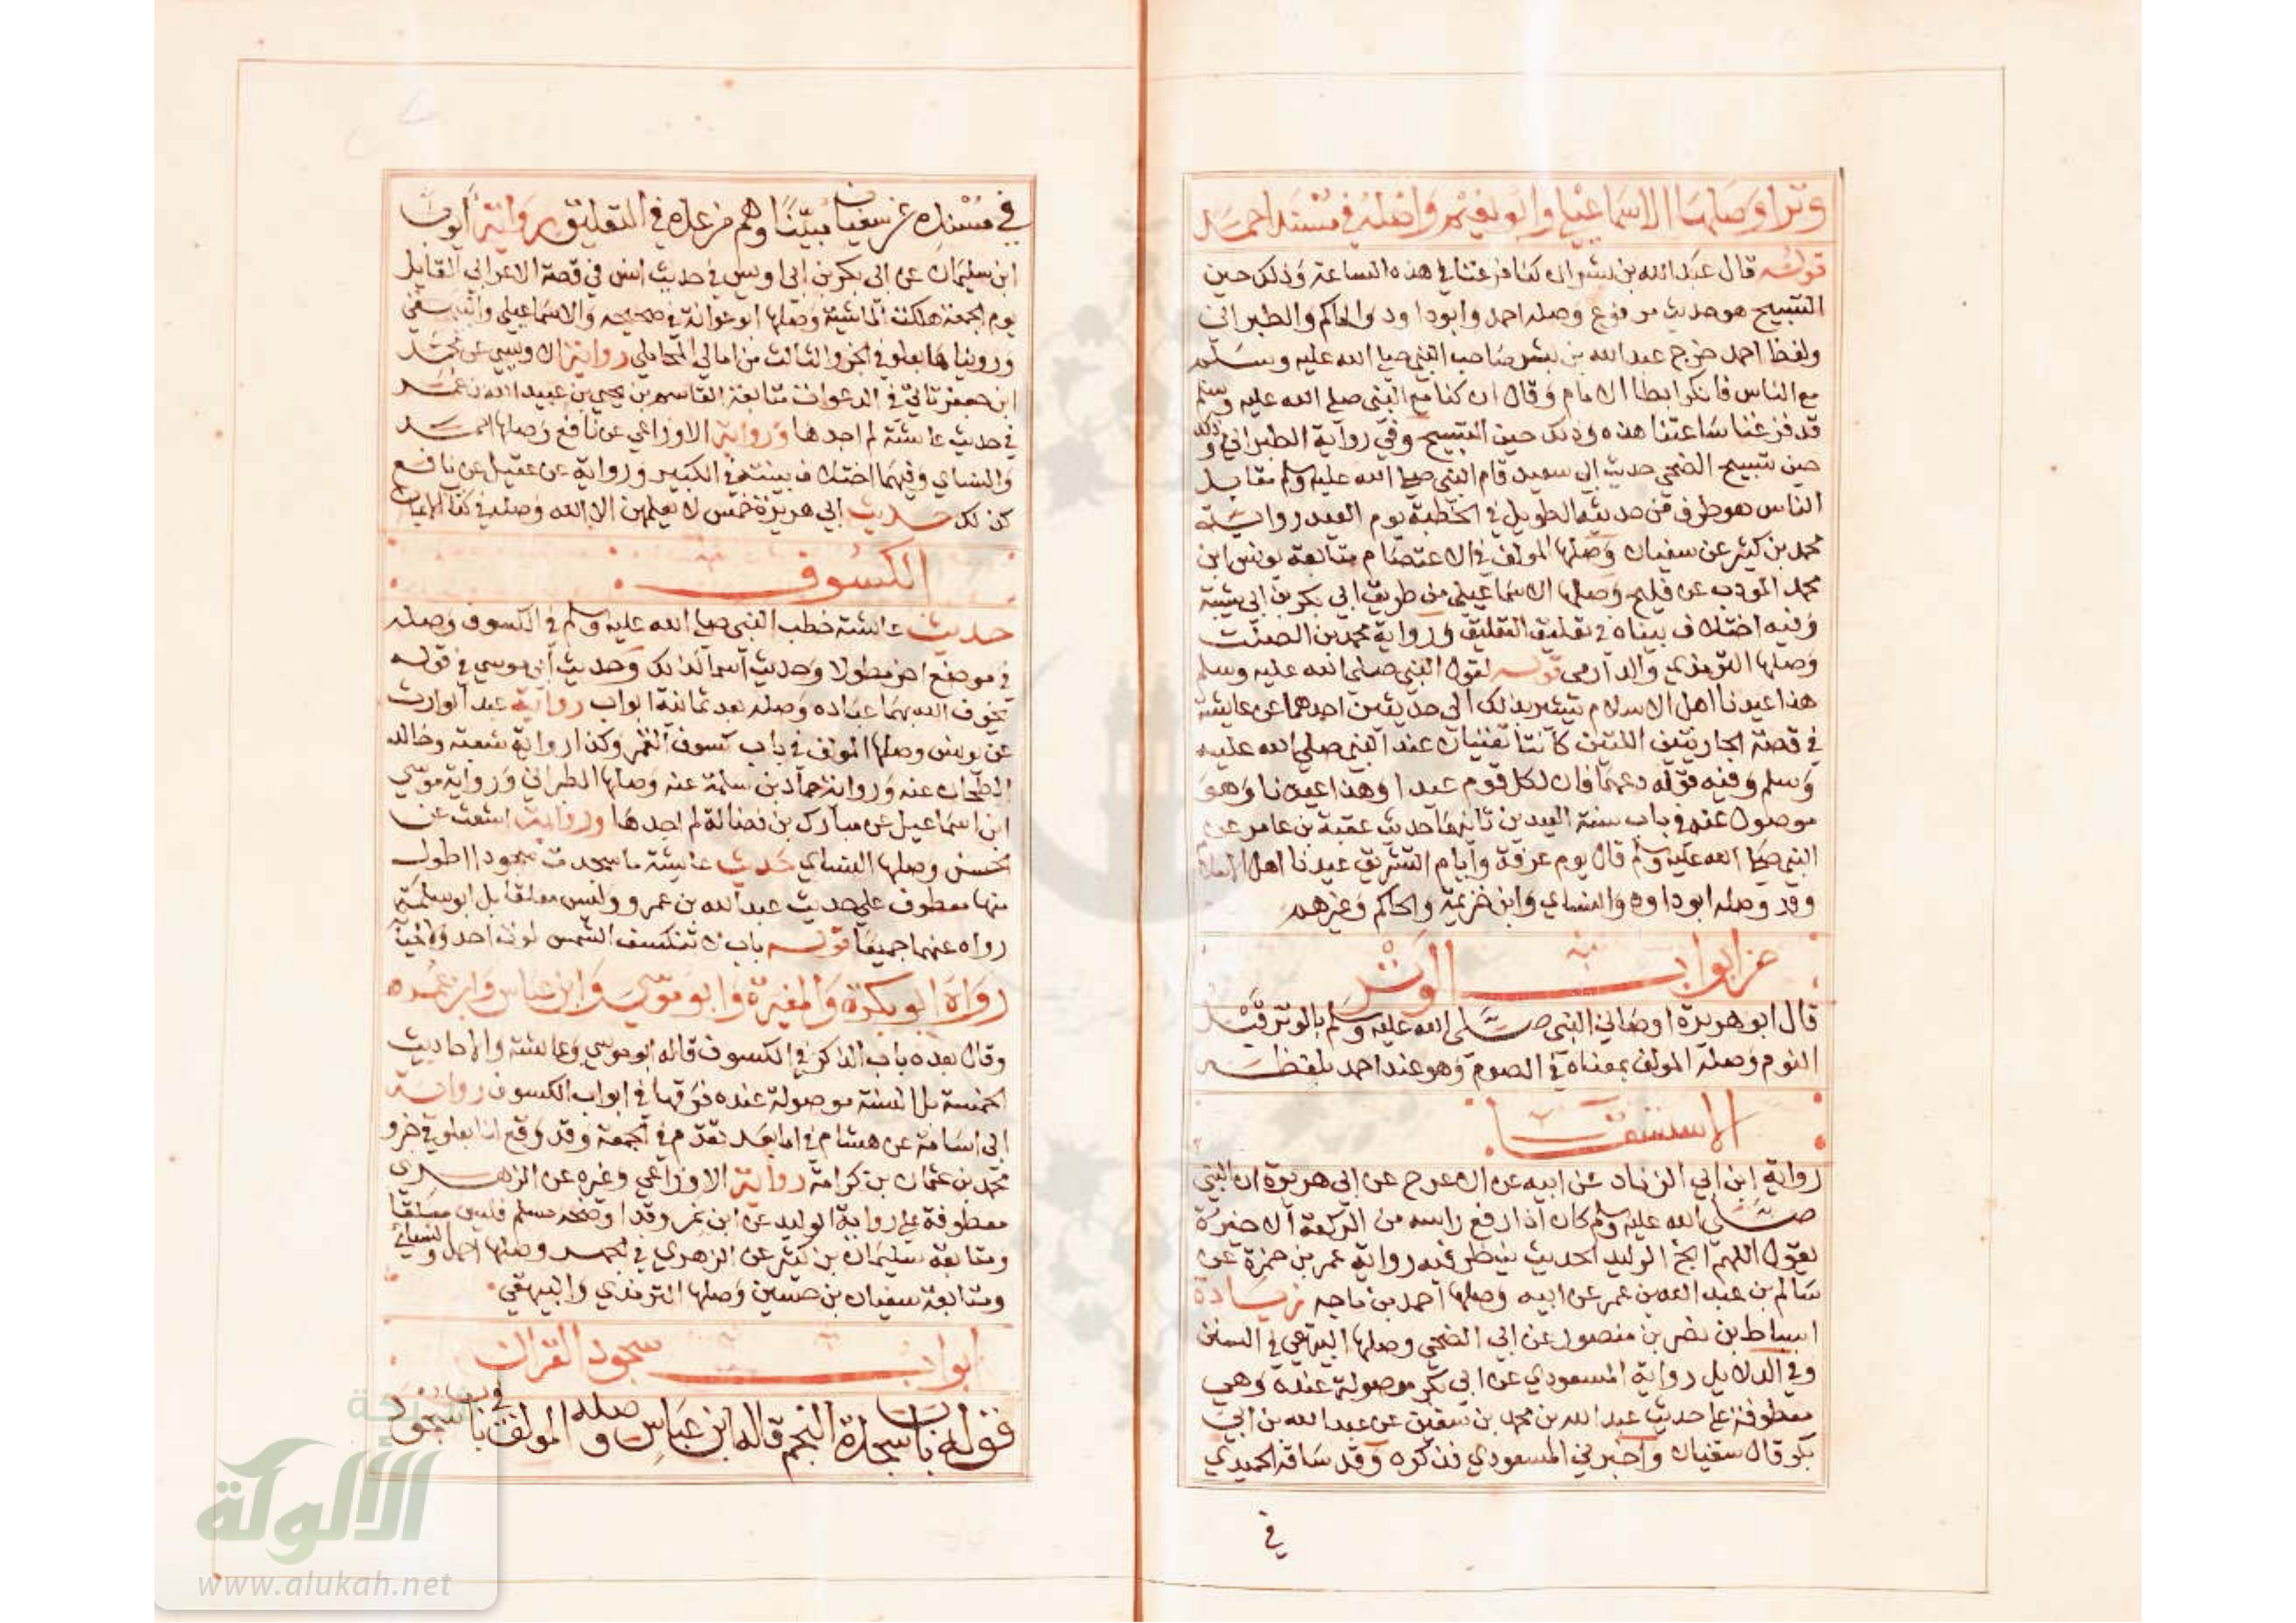 وترا وصلها الاسماعيلي وابو نعيم واصله في مسند احمد
قوله قال عبد الله بن بسر ان كنا فرغنا في هذه الساعة وذلك حين
التسبيح هو حديث مرفوع وصله احمد وابو داود والحاكم والطبراني
ولفظ احمد خرج عبد الله بن بسر صاحب النبي صلي الله عليه وسلم
مع الناس فانكر ابطا الامام وقال ان كنا مع النبي صلي الله عليه وسلم
قد فرغنا ساعتنا هذه وذلك حين التسبيح وفي رواية الطبراني وذلك
حين تسبيح الضحي حديث ابي سعيد قام النبي صلي الله عليه وسلم مقابل
الناس هو طرف من حديثه الطويل في الخطبة يوم العيد رواية
محمد بن كثير عن سفيان وصلها المولف في الاعتصام متابعة يونس ابن
محمد المودب عن فليح وصلها الاسماعيلي من طريق ابي بكر بن ابي شيبة
وفيه اختلاف بيناه في تغليق التعليق ورواية محمد بن الصلت
وصلها الترمذي والدارمي قوله لقول النبي صلي الله عليه وسلم
هذا عيدنا اهل الاسلام يشير بذلك الي حديثين احدهما عن عايشة
في قصة الجاريتين اللتين كانتا تغنيان عند النبي صلي الله عليه
وسلم وفيه قوله دعهما فان لكل قوم عيدا وهذا عيدنا وهو
موصول عنده في باب سنة العيدين ثانيهما حديث عقبة بن عامر عن
النبي صلي الله عليه وسلم قال يوم عرفة وايام التشريق عيدنا اهل الاسلام
وقد وصله ابو داود والنساي وابن خزيمة والحاكم وغيرهم
من ابواب الوتر
قال ابو هريرة اوصاني النبي صلى الله عليه وسلم بالوتر قبل
النوم وصله المولف بمعناه في الصوم وهو عند احمد بلفظه
الاستسقا
رواية ابن ابي الزناد عن ابيه عن الاعرج عن ابي هريرة ان النبي
صلى الله عليه وسلم كان اذا رفع راسه من الركعة الاخيرة
يقول اللهم انج الوليد الحديث ينظر فيه رواية عمر بن حمزة عن
سالم بن عبد الله بن عمر عن ابيه وصلها احمد بن ماجه زيادة
اسباط بن نصر بن منصور عن ابي الضحي وصلها البيهقي في السنن
وفي الدلايل رواية المسعودي عن ابي بكر موصولة عنده وهي
معطوفة علي حديث عبد الله بن محمد بن سفين عن عبد الله بن ابي
بكر قال سفيان واخبرني المسعودي فذكره وقد ساقه الحميدي
في
في مسنده عن سفيان مبينا وهم من عده في التعليق رواية ايوب
ابن سليمان عن ابي بكر بن ابي اويس في حديث انس في قصة الاعرابي القايل
يوم الجمعة هلكت الماشية وصلها ابو عوانة في صحيحه والاسماعيلي والبيهقي
ورويناها بعلو في الجزو الثالث من امالي المحاملي رواية الاويسي عن محمد
ابن جعفر تاتي في الدعوات متابعة القاسم بن يحيي بن عبيد الله بن عمر
في حديث عايشة لم اجدها ورواية الاوزاعي عن نافع وصلها احمد
والنساي وفيهما اختلاف بينته في الكبير ورواية عن عقيل عن نافع
كذلك حديث ابي هريرة خمس لا يعلمهن الا الله وصله في كتاب الايمان
الكسوف
حديث عايشة خطب النبي صلي الله عليه وسلم في الكسوف وصله
في موضع اخر مطولا وحديث اسما كذلك وحديث ابي موسي في قوله
يخوف الله بهما عباده وصله بعد ثمانية ابواب رواية عبد الوارث
عن يونس وصلها المولف في باب كسوف القمر وكذا رواية شعبة وخالد
الطحان عنه ورواية حماد بن سلمة عنه وصلها الطبراني ورواية موسي
ابن اسماعيل عن مبارك بن فضالة لم اجدها ورواية اشعث عن
الحسن وصلها النساي حديث عايشة ما سجدت سجودا اطول
منها معطوف علي حديث عبد الله بن عمرو وليس معلقا بل ابو سلمة
رواه عنهما جميعا قوله باب لا تنكسف الشمس لموت احد ولا لحياته
رواه ابو بكرة والمغيرة وابو موسي وابن عباس وابن عمر
وقال بعده باب الذكر في الكسوف قاله ابو موسي وعايشة والاحاديث
الخمسة بل الستة موصولة عنده فرقها في ابواب الكسوف رواية
ابي اسامة عن هشام في اما بعد تقدم في الجمعة وقد وقع لنا بعلو في جزو
محمد بن عثمان بن كرامة رواية الاوزاعي وغيره عن الزهري
معطوفة علي رواية الوليد عن ابن نمر وقد اوضحه مسلم فليس معلقا
ومتابعة سليمان بن كثير عن الزهري في الجهر وصلها احمد والنسائي
ومتابعة سفيان بن حسين وصلها الترمذي والبيهقي
ابواب سجود القران
قوله باب سجدة النجم قاله ابن عباس وصله المولف في باب سجود
شبكة
الألوكة
www.alukah.net